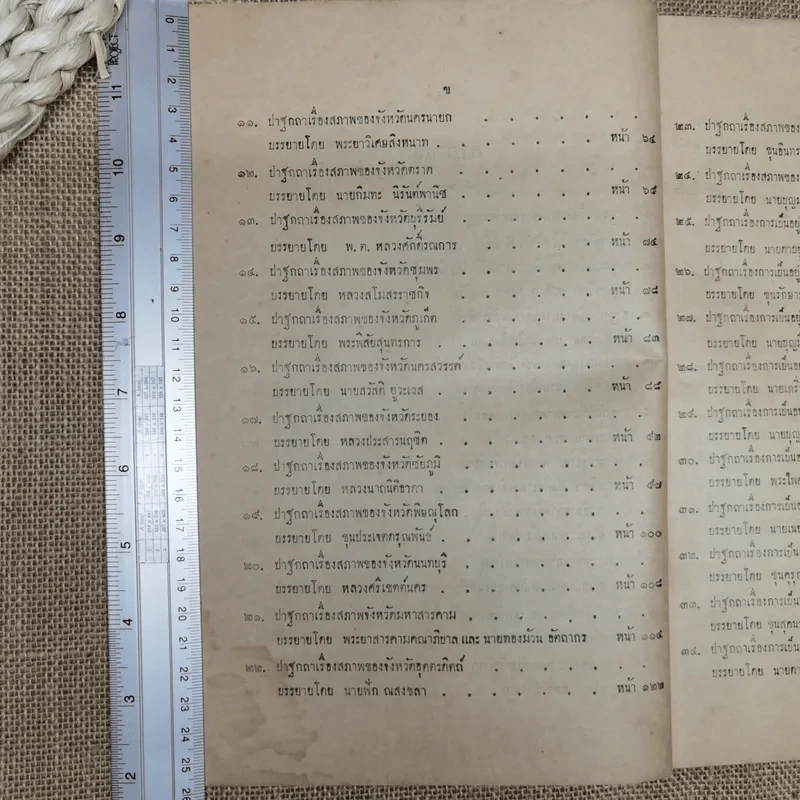 ข
๑๑. ปาฐกถาเรื่องสภาพของจังหวัดนครนายก
บรรยายโดย พระยาวิเศษสิงหนาท . . . . . . หน้า ๖๔
๑๒. ปาฐกถาเรื่องสภาพของจังหวัดตราด
บรรยายโดย นายกิมทะ นิรันต์พานิช . . . . . . หน้า ๖๙
๑๓. ปาฐกถาเรื่องสภาพของจังหวัดบุรีรัมย์
บรรยายโดย พ. ต. หลวงศักดิ์รณการ . . . . . หน้า ๗๔
๑๔. ปาฐกถาเรื่องสภาพของจังหวัดชุมพร
บรรยายโดย หลวงสโมสรราชกิจ . . . . . . หน้า ๗๘
๑๕. ปาฐกถาเรื่องสภาพของจังหวัดภูเก็ต
บรรยายโดย พระพิสัยสุนทรการ . . . . . . หน้า ๘๓
๑๖. ปาฐกถาเรื่องสภาพของจังหวัดนครสวรรค์
บรรยายโดย นายสวัสดิ์ ยูวะเวส . . . . . . หน้า ๘๘
๑๗. ปาฐกถาเรื่องสภาพของจังหวัดระยอง
บรรยายโดย หลวงประสารนฤชิต . . . . . . หน้า ๙๒
๑๘. ปาฐกถาเรื่องสภาพของจังหวัดชัยภูมิ
บรรยายโดย หลวงนาถนิติธาดา . . . . . . หน้า ๙๗
๑๙. ปาฐกถาเรื่องสภาพของจังหวัดพิษณุโลก
บรรยายโดย ขุนประเจตดรุณพันธ์ . . . . . . หน้า ๑๐๐
๒๐. ปาฐกถาเรื่องสภาพของจังหวัดนนทบุรี
บรรยายโดย หลวงศรีเขตต์นคร . . . . . . หน้า ๑๐๘
๒๑. ปาฐกถาเรื่องสภาพจังหวัดมหาสารคาม
บรรยายโดย พระยาสารคามคณาภิบาล และ นายทองม้วน อัตถากร หน้า ๑๑๔
๒๒. ปาฐกถาเรื่องสภาพของจังหวัดอุตตรดิตถ์
บรรยายโดย นายฟัก ณสงขลา . . . . . . หน้า ๑๒๒
๒๓. ปาฐกถาเรื่องสภาพของ
บรรยายโดย ขุนอินทร
๒๔. ปาฐกถาเรื่องสภาพของ
บรรยายโดย นายบุญม
๒๕. ปาฐกถาเรื่องการเย็นอยู่
บรรยายโดย นายดาบย
๒๖. ปาฐกถาเรื่องการเย็นอยู่
บรรยายโดย ขุนรักษา
๒๗. ปาฐกถาเรื่องการเย็นอยู่
บรรยายโดย นายบุญม
๒๘. ปาฐกถาเรื่องการเย็นอย
บรรยายโดย นายเกริ
๒๙. ปาฐกถาเรื่องการเย็นอย
บรรยายโดย นายบุญ
๓๐. ปาฐกถาเรื่องการเย็นอ
บรรยายโดย พระไพศ
๓๑. ปาฐกถาเรื่องการเย็นอ
บรรยายโดย นายเนย
๓๒. ปาฐกถาเรื่องการเย็น
บรรยายโดย ขุนคุรุ
๓๓. ปาฐกถาเรื่องการเย็น
บรรยายโดย ขุนสุคนธ
๓๔. ปาฐกถาเรื่องการเย็น
บรรยายโดย นายดา